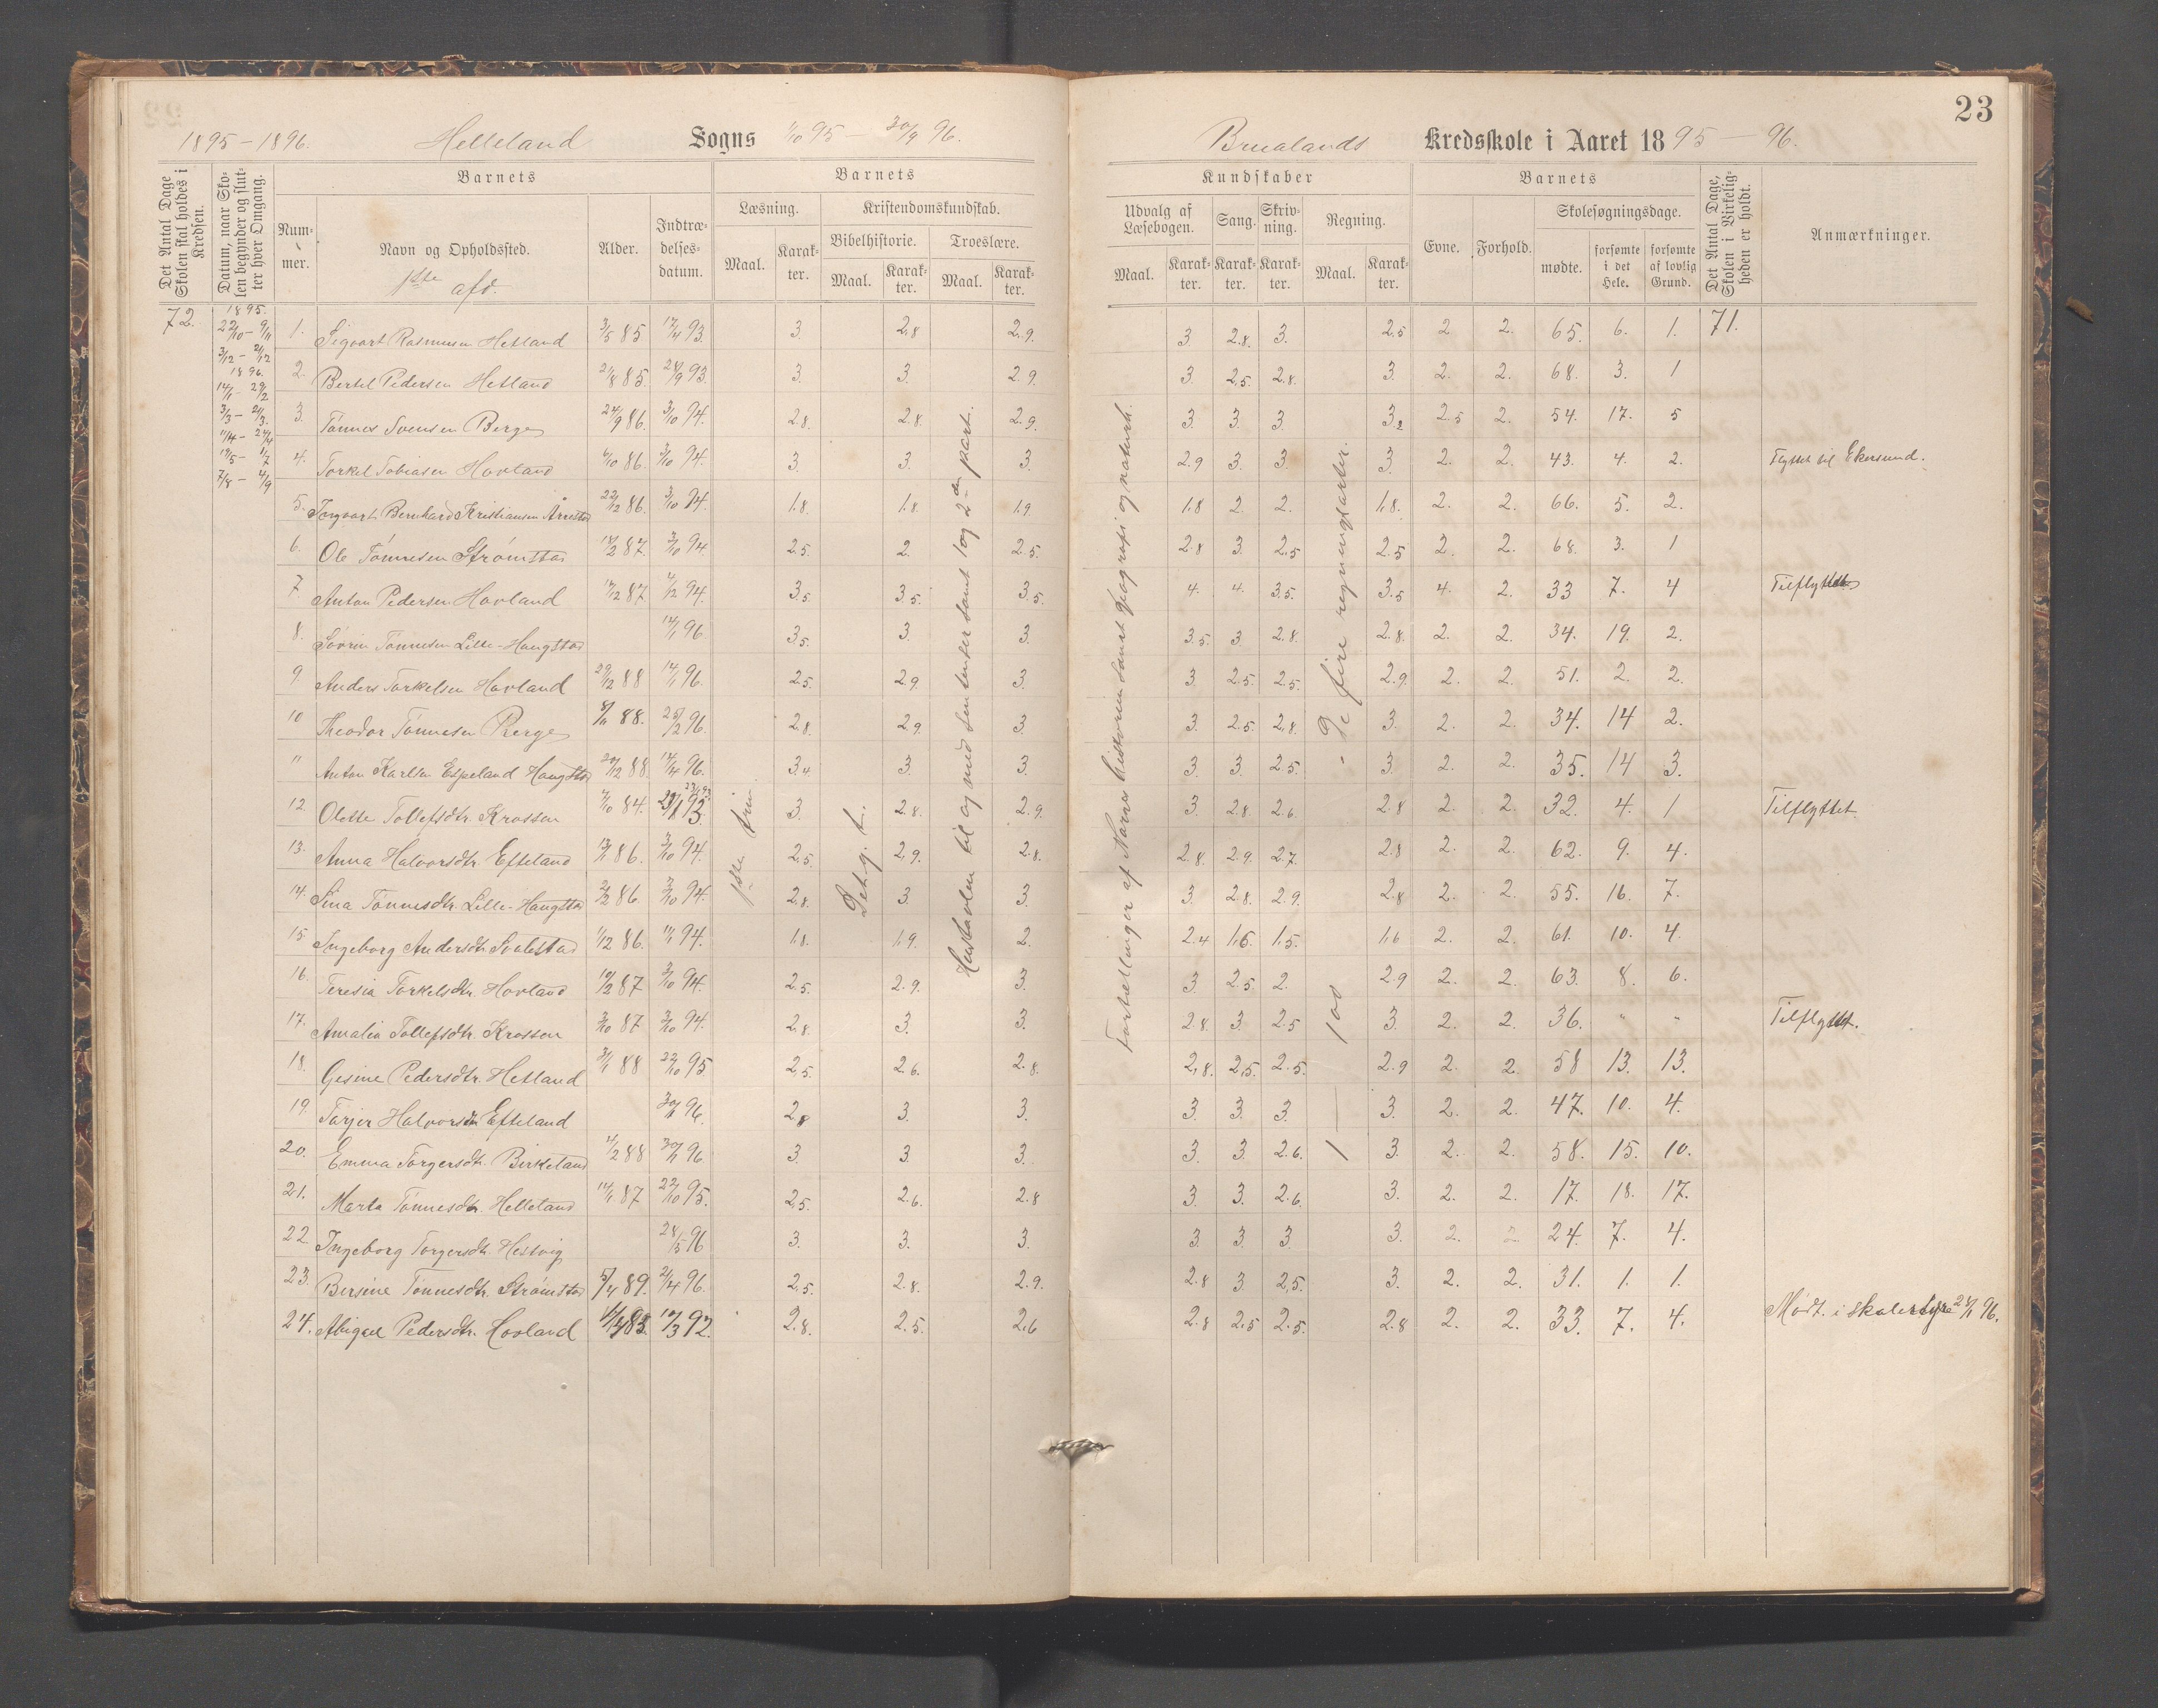 23
1895-1896. Helleland Sogns 1/10 95 - 30/9 96.
Brualands Kredsskole i Aaret 1895 - 96.
Det Antal Dage Skolen skal holdes i Kredsen.
Datum, naar Skolen begynder og slutter hver Omgang.
Barnets
Nummer.
Navn og Opholdssted.
1ste afd.
Alder.
Indtrædelsesdatum.
Barnets
Læsning.
Maal.
Karakter.
Kristendomskundskab.
Bibelhistorie.
Maal.
Karakter.
Troeslære.
Maal.
Karakter.
Kundskaber
Udvalg af Læsebogen.
Maal.
Karakter.
Sang.
Karakter.
Skrivning.
Karakter.
Regning.
Maal.
Karakter.
Barnets
Evne.
Forhold.
Skolesøgningsdage.
mødte.
forsømte i det Hele.
forsømte af lovlig Grund.
Det Antal Dage, Skolen i Virkeligheden er holdt.
Anmærkninger.
72.
1895.
22/10 - 9/11
3/12 - 21/12
1896.
14/1 - 29/2
3/3 - 21/3.
11/4 - 24/4
19/5 - 1/7
7/8 - 4/9
1. Sigvart Rasmusen Hetland 3/5 85 17/4 93. 3. 2.8 2.9. 3 2.8. 3. 2.5 2 2. 65. 6. 1. 71.
2. Bertel Pedersen Hetland 21/8 85. 28/9 93. 3. 3. 2.9. 3. 2.5. 2.8. 3. 2. 2. 68. 3. 1
3. Tønnes Svensen Berge 24/9 86. 3/10 94. 2.8. 2.8. 2.9. 3. 3. 3. 3.2 2.5 2. 54. 17. 5
4. Torkel Tobiasen Hovland 6/10 86. 3/10 94. 3. 3. 3. 2.9 3. 3. 3. 2. 2. 43. 4. 2. Flyttet til Ekersund.
5. Ingvart Bernhard Kristiansen Årrestad 22/12 86. 3/10 94. 1.8. 1.8. 1.9. 1.8 2. 2. 1.8. 2. 2. 66. 5. 2.
6. Ole Tønnesen Strømstad 12/2 87. 3/10 94. 2.5. 2. 2.5. 2.8 3. 2.5 2.5 2. 2. 68. 3. 1
7. Anton Pedersen Hovland 17/12 87 4/12 94. 3.5. 3.5. 3.5. 4. 4. 3.5. 3.5 4. 2. 33 7. 4 Tilflyttet
8. Sørin Tønnesen Lille-Haugstad 14/1 96 3.5. 3. 3. 3.5. 3 2.8. 2.8. 2. 2. 34. 19. 2.
9. Anders Torkelsen Hovland 29/12 88 14/1 96. 2.5. 2.9. 3. 3. 2.5. 2.5. 2.9. 2. 2. 51. 2. 2.
10 Theodor Tønnesen Berge 8/11 88. 25/2 96. 2.8. 2.9. 3. 3. 2.5 2.8. 3. 2. 2. 34. 14 2.
11 Anton Karlsen Espeland Haugstad 20/12 88. 14/4 96. 3.4 3. 3. 3. 3. 2.5. 3. 2. 2. 35. 14 3.
12. Olette Tollefsdtr. Krossen 4/10 84. 3. 2.8. 2.9. 3. 2.8. 2.6. 2.8 2. 2. 32. 4. 1 Tilflyttet.
13. Anna Halvorsdtr. Efteland 13/11 86. 3/10 94. 2.5 2.9. 2.8. 2.8. 2.9. 2.7. 2.8 2. 2. 62. 9. 4.
14. Sina Tønnesdtr. Lille-Haugstad 2/2 86 3/10 94. 2.8. 3. 3. 3. 2.8. 2.9. 2.8 2. 2. 55. 16. 7.
15 Ingeborg Andersdtr. Svalestad 1/12 86. 11/1 94. 1.8. 1.9. 2. 2.4 1.6. 1.5. 1.6 2. 2. 61. 10. 4.
16. Teresia Torkelsdtr. Hovland 10/2 87 3/10 94. 2.5. 2.9. 3. 3. 2.5. 2. 2.9 2. 2. 63. 8. 6.
17. Amalia Tollefsdtr. Krossen 3/10 87 3/10 94. 2.8. 3. 3. 2.8. 3. 2.5 3. 2. 2. 36. " " Tilflyttet.
18. Gesine Pedersdtr. Hetland 31/1 88 22/10 95 2.5. 2.6. 2.8. 2.8. 2.5. 2.5. 2.9 2. 2. 58 13. 13.
19. Tarjer Halvorsdtr. Efteland 30/1 96. 2.8 3. 3. 3. 3. 3. 3. 2. 2. 47. 10. 4.
20. Emma Torgersdtr. Birkeland 4/2 88 30/1 96 3. 3. 3. 3. 3. 2.6. 3. 2. 2. 58. 15. 10.
21. Marta Tønnesdtr. Helleland 14/1 87 22/10 95. 2.5. 2.6. 2.8 3 3. 2.6 3. 2. 2. 17. 18. 17.
22. Ingeborg Torgersdtr. Hestvig 28/5 96 3. 3. 3. 3. 3. 3. 3. 2. 2. 24. 7. 4.
23. Bersine Tønnesdtr. Strømstad 5/4 89. 21/4 96. 2.5. 2.8. 2.9. 2.8 3 2.5. 3. 2. 2. 31. 1. 1.
24. Abigael Pedersdtr. Hovland 17/3 92. 2.8. 2.5. 2.6 2.8 2.5 2.5. 2.8 2. 2. 33. 7. 4. Mødt. i skolestyre 24/1 96.
1ste trin
Det g. t.
Hustavlen til og med sentenser samt 1 og 2den part.
Fortællinger af Norges historien samt geografi og naturh.
1 - 100 - De fire regningsarter.